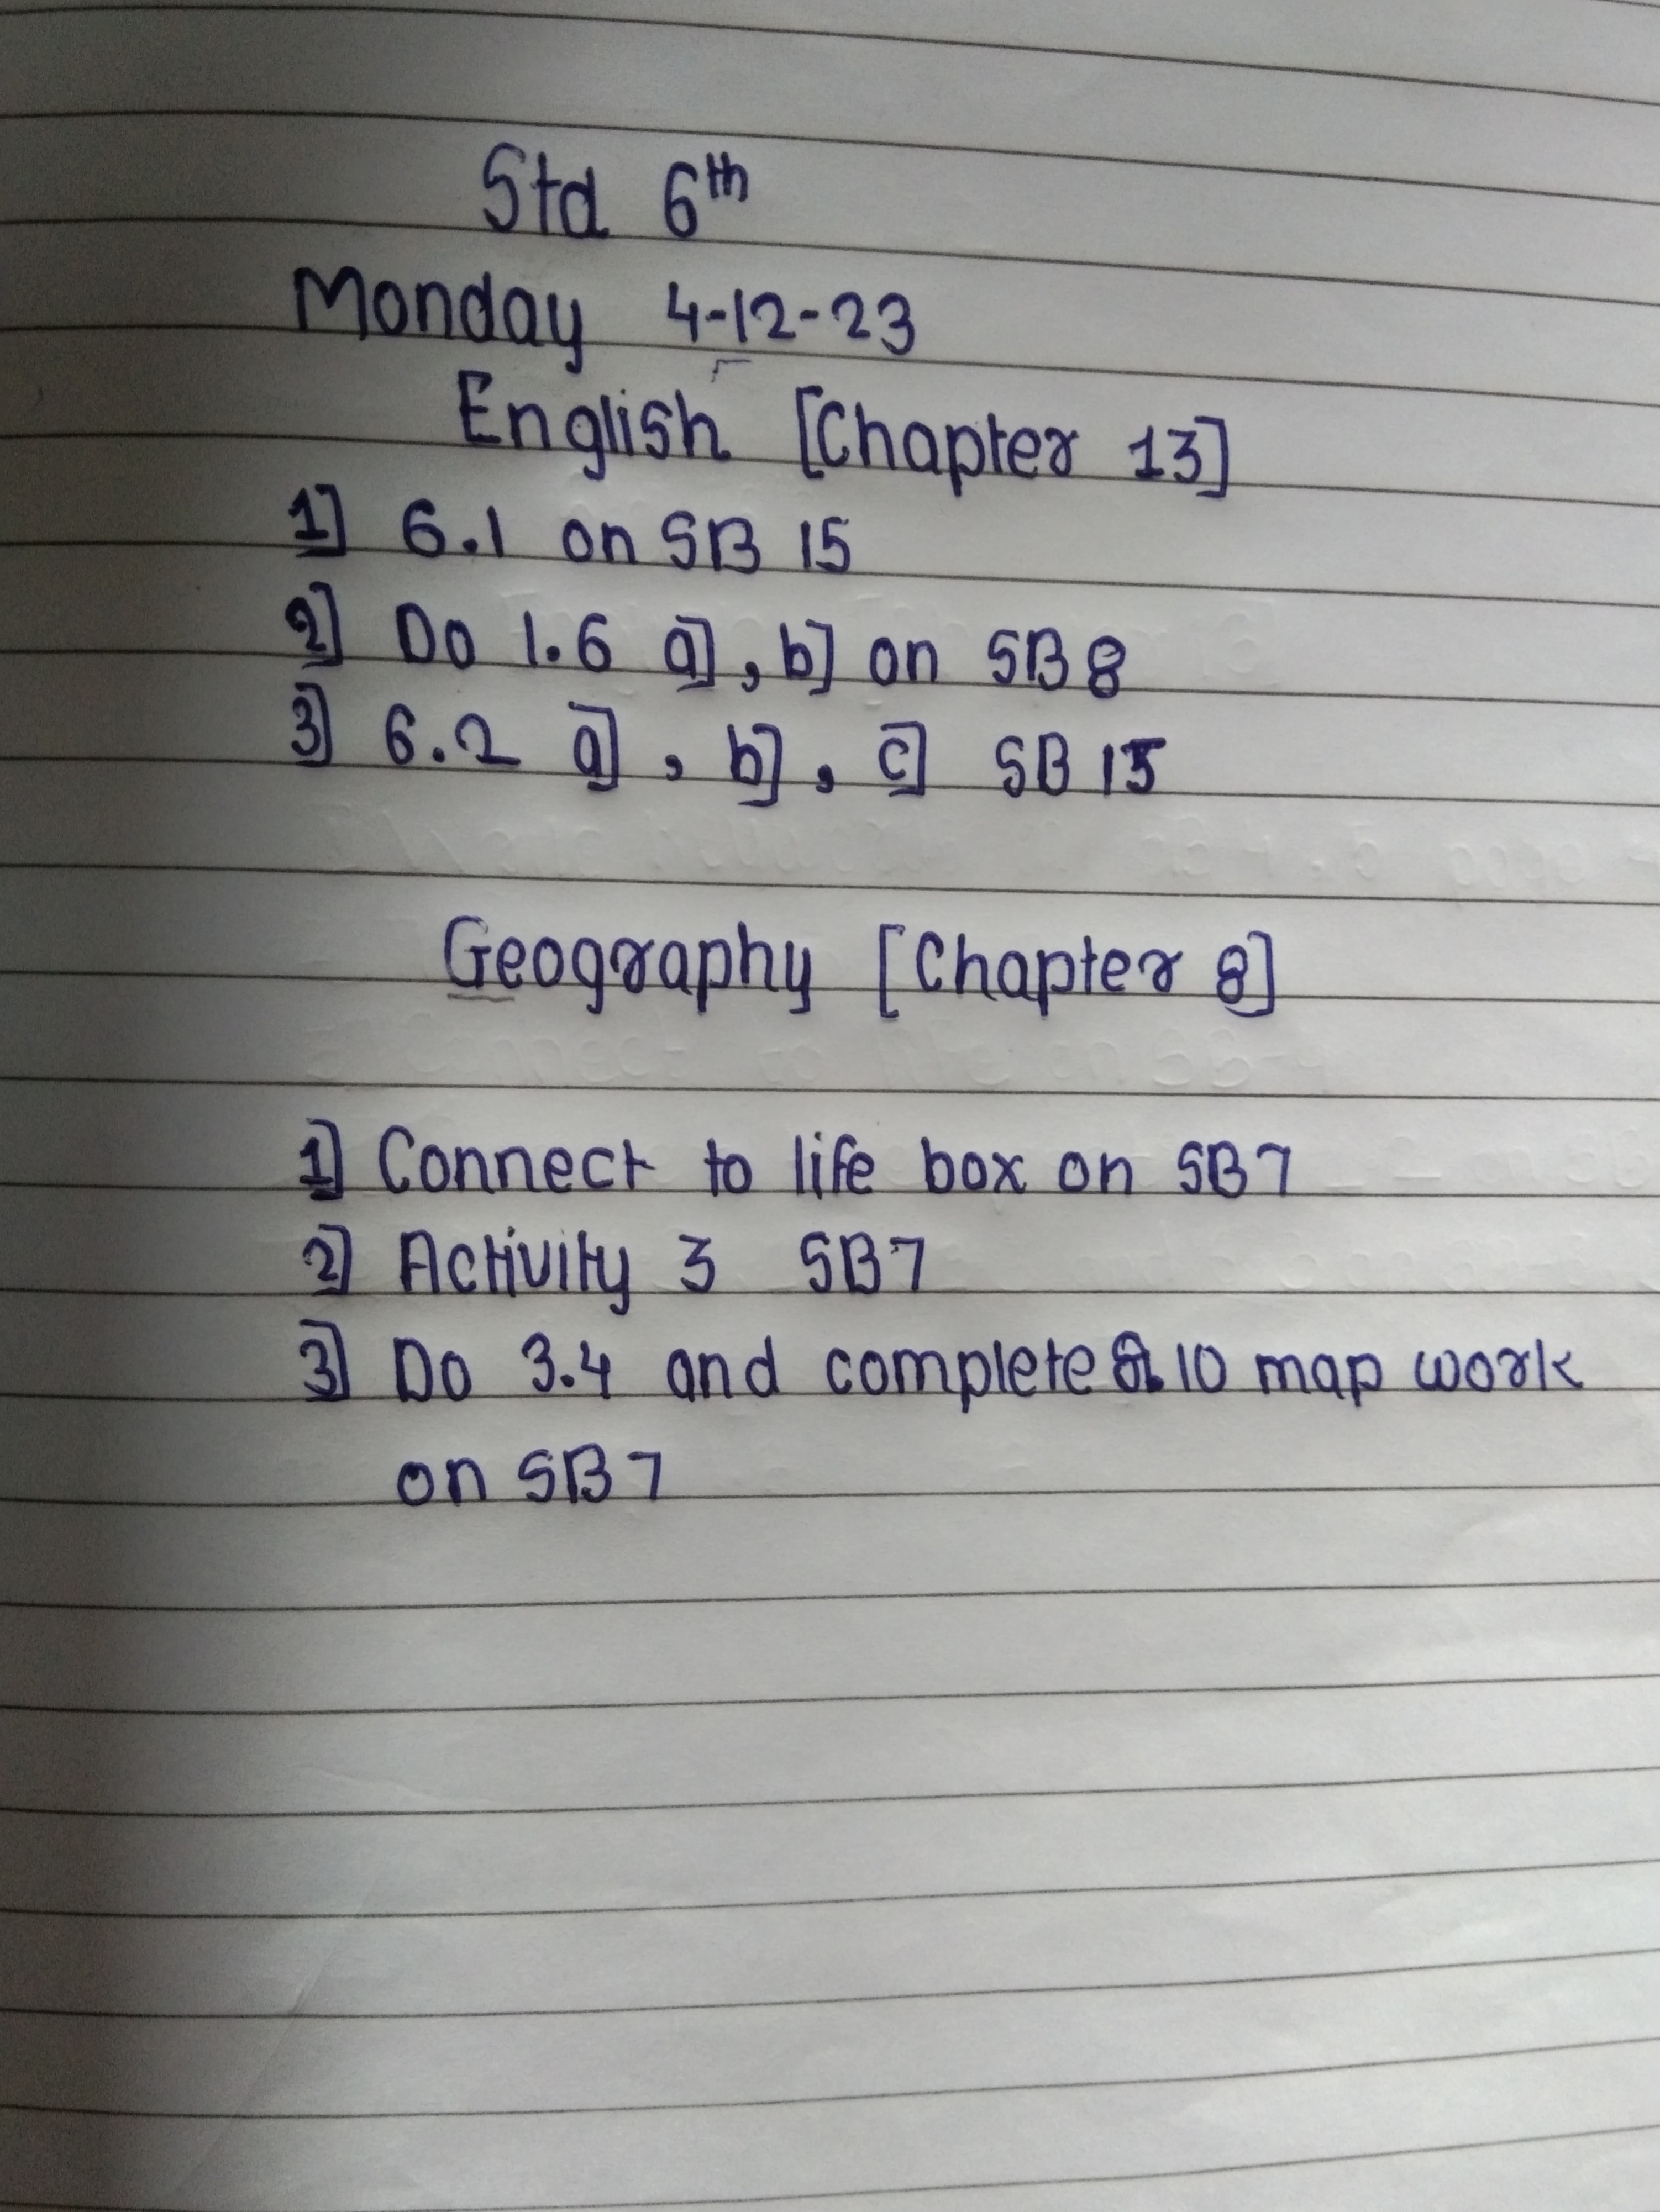 Std 6th
Monday 4-12-23
English [Chapter 13]
1] 6.1 on SB 15
2] Do 1.6 a], b] on SB 8
3] 6.2 a], b], c] SB 15
Geography [Chapter 8]
1] Connect to life box on SB7
2] Activity 3 SB7
3] Do 3.4 and complete 10 map work
on SB7